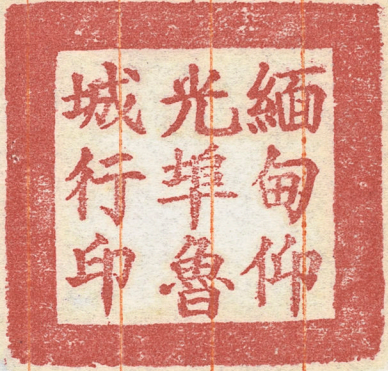 緬甸仰
光埠魯
城行印